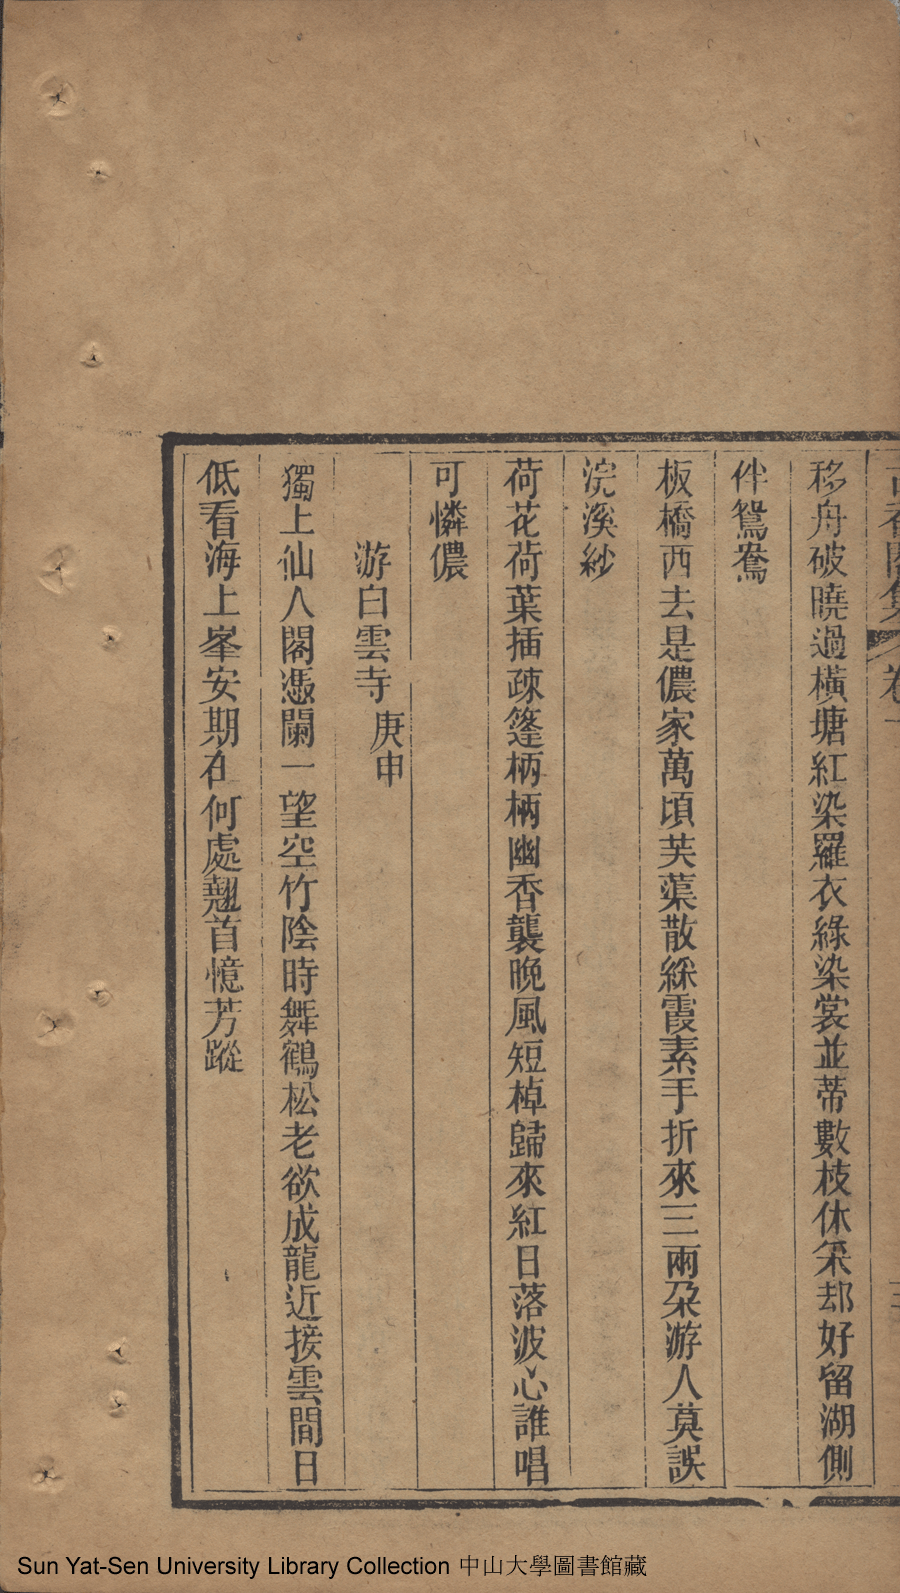 古香閣集 卷一
移舟破曉過橫塘紅染羅衣綠染裳並蒂數枝休采却好留湖側
伴鴛鴦
板橋西去是儂家萬頃芙蕖散綵霞素手折來三兩朶游人莫誤
浣溪紗
荷花荷葉插疎篷柄柄幽香襲晚風短棹歸來紅日落波心誰唱
可憐儂
游白雲寺庚申
獨上仙人閣憑闌一望空竹陰時舞鶴松老欲成龍近接雲間日
低看海上峯安期在何處翹首憶芳蹤
Sun Yat-Sen University Library Collection 中山大學圖書館藏